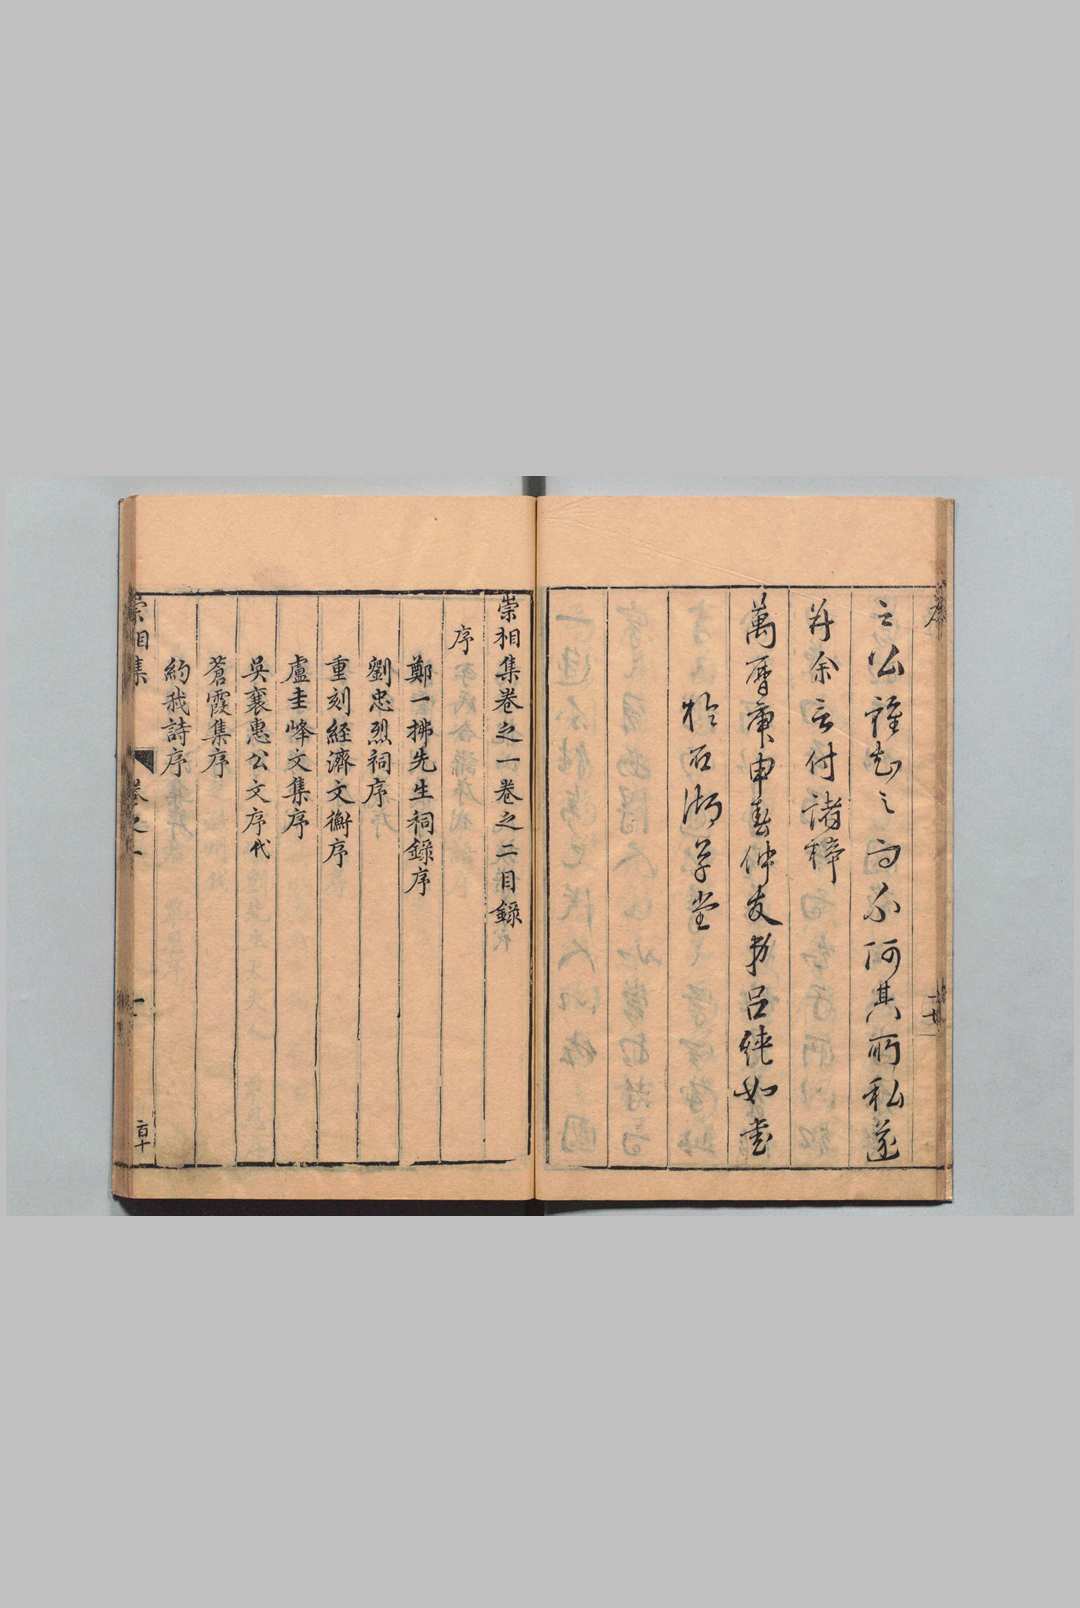 之公雖知之而不阿其所私遂
并余言付諸梓
萬曆庚申春仲友弟呂純如書
於石湖草堂
崇相集卷之一卷之二目錄
序
鄭一拂先生祠錄序
劉忠烈祠序
重刻經濟文衡序
盧圭峰文集序
吳襄惠公文序代
蒼霞集序
約我詩序
崇相集 卷之一 一 百十